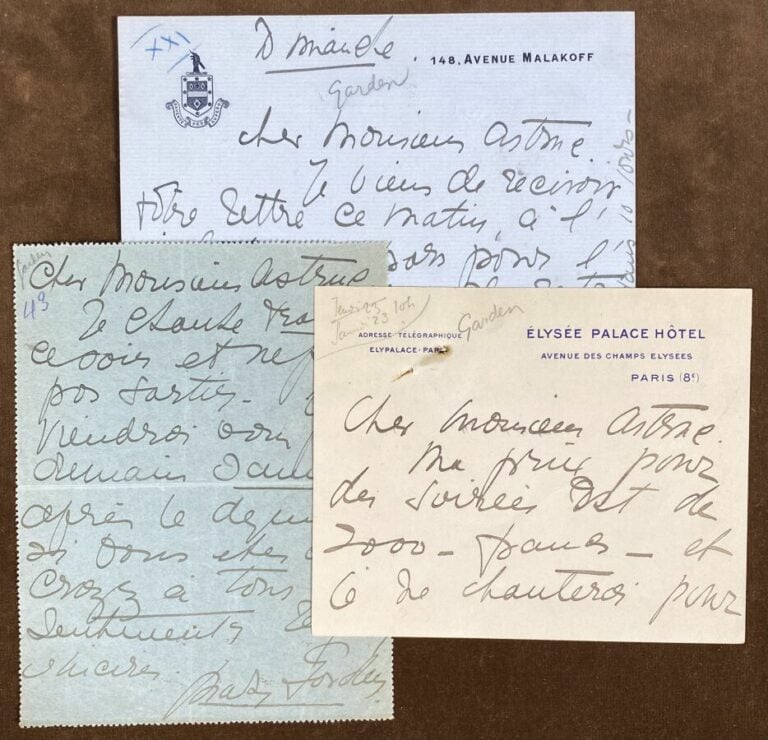 XXI
Dimanche
148, AVENUE MALAKOFF
Garden
Cher Monsieur Astruc.
Je viens de recevoir
votre lettre ce matin, à l'
pour l'
Garden
49
Cher Monsieur Astruc
Je chante
ce soir et ne
pas sortir.
viendrai vous
demain
après le
si vous etes
Croyez à tous
sentiments
sincères.
Mary Garden
Jeudi 25
Janvi 23 10h
Garden
ADRESSE TÉLÉGRAPHIQUE
ELYPALACE-PARIS
ÉLYSÉE PALACE HÔTEL
AVENUE DES CHAMPS ELYSEES
PARIS (8e)
Cher Monsieur Astruc.
Ma prix pour
des soirées est de
2000 - francs - et
je ne chanterai pour